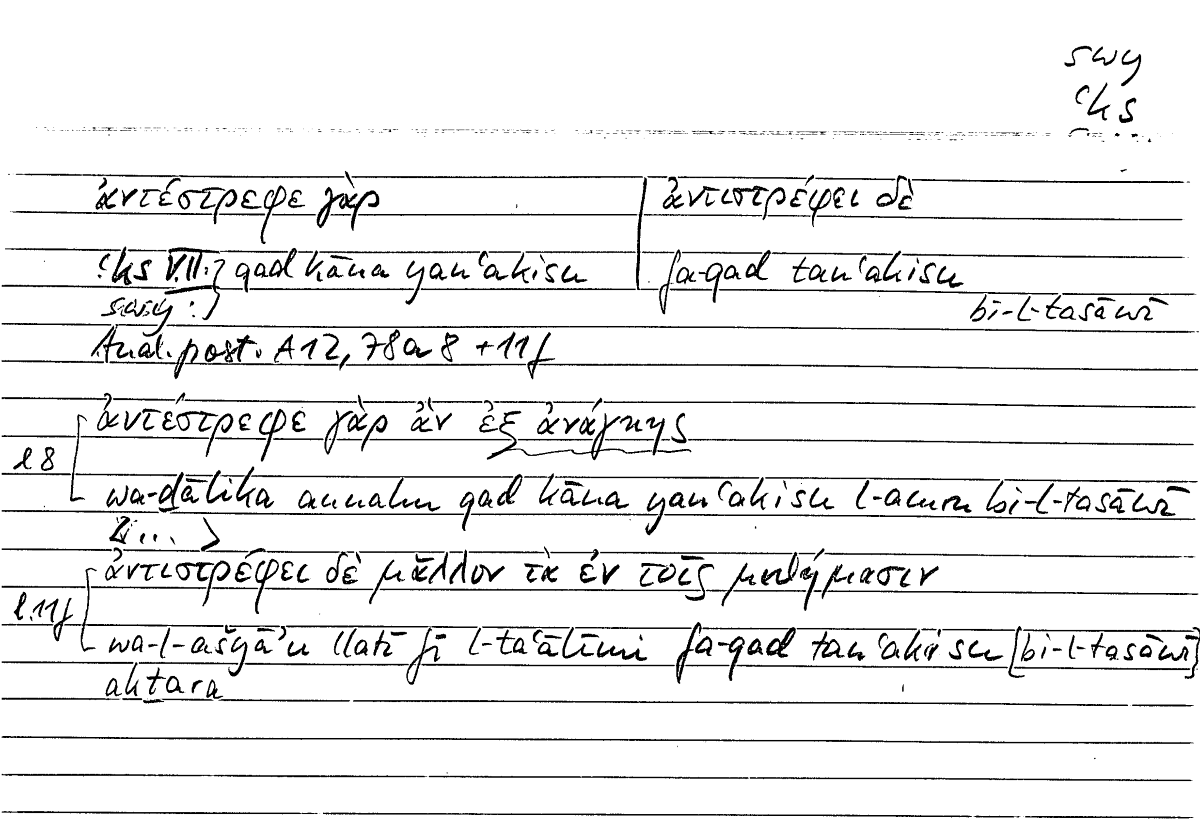 swy
ʿks
ἀντέστρεφε γὰρ
ἀντιστρέφει δὲ
ʿks VII: qad kāna yanʿakisu
fa-qad tanʿakisu
swy:
bi-l-tasāwī
Anal. post. A 12, 78a 8 + 11f
ἀντέστρεφε γὰρ ἂν ἐξ ἀνάγκης
l 8
wa-ḏālika annahu qad kāna yanʿakisu l-amru bi-l-tasāwī
<...>
ἀντιστρέφει δὲ μᾶλλον τὰ ἐν τοῖς μαθήμασιν
l. 11f
wa-l-ašyāʾu llatī fī l-taʿālīmi fa-qad tanʿakisu [bi-l-tasāwī]
akṯara